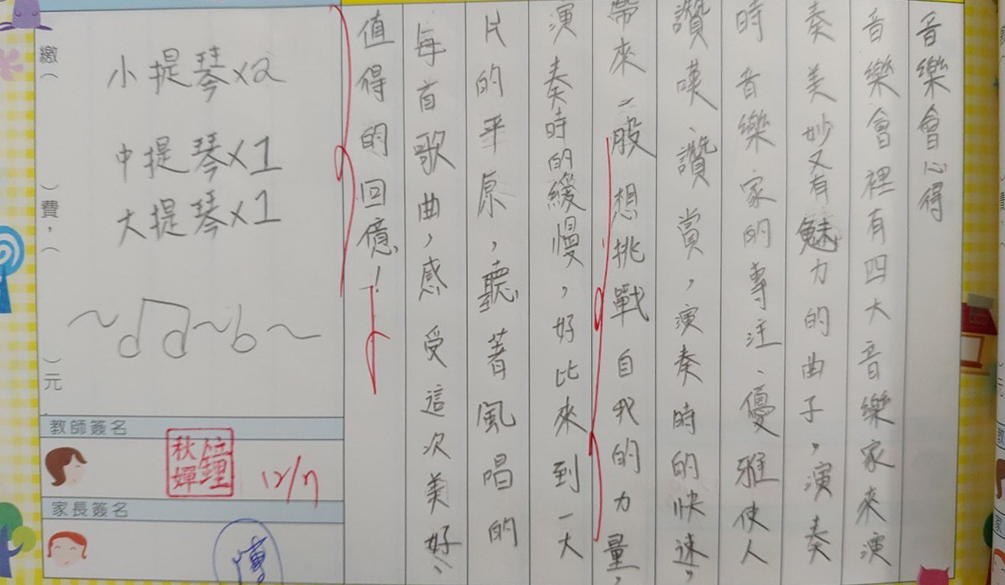 音樂會心得
音樂會裡有四大音樂家來演
奏美妙又有魅力的曲子,演奏
時音樂家的專注、優雅使人
讚嘆、讚賞,演奏時的快速,
帶來一股想挑戰自我的力量,
演奏時的緩慢,好比來到一大
片的平原,聽著風唱的
每首歌曲,感受這次美好、
值得的回憶!
繳( )費,( )元
小提琴x2
中提琴x1
大提琴x1
教師簽名
秋嬋鐘
12/7
家長簽名